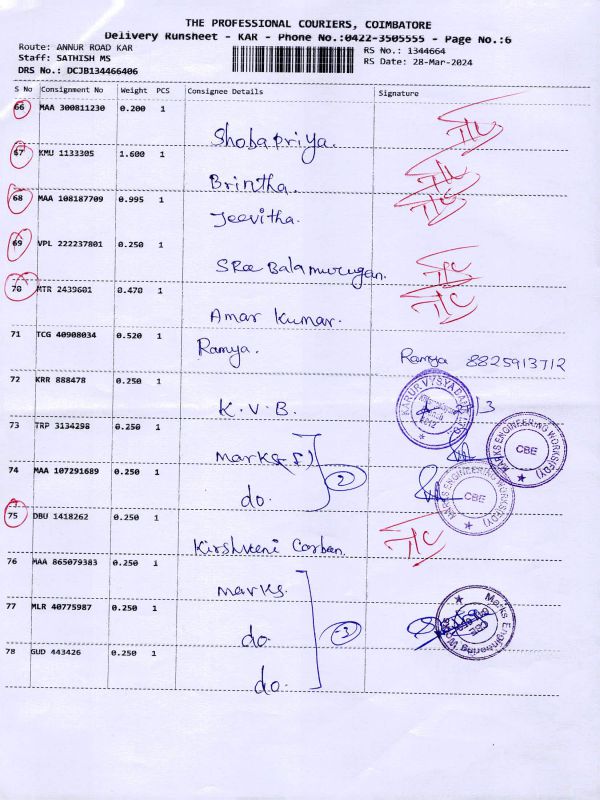 THE PROFESSIONAL COURIERS, COIMBATORE
Delivery Runsheet - KAR - Phone No.:0422-3505555 - Page No.:6
Route: ANNUR ROAD KAR
RS No.: 1344664
Staff: SATHISH MS
RS Date: 28-Mar-2024
DRS No.: DCJB134466406
S No Consignment No Weight PCS Consignee Details Signature
66 MAA 300811230 0.200 1
Shobapriya. T/C
67 KMU 1133305 1.600 1
Brintha. T/C
68 MAA 108187709 0.995 1
Jeevitha. T/C
69 VPL 222237801 0.250 1
SRee Balamurugan. T/C
70 MTR 2439601 0.470 1
Amar Kumar. T/C
71 TCG 40908034 0.520 1
Ramya. Ramya 8825913712
72 KRR 888478 0.250 1
K.V.B. KARUR VYSYA BANK
73 TRP 3134298 0.250 1
marks MARKS ENGINEERING WORKS(FDY) CBE
74 MAA 107291689 0.250 1
do. 2 MARKS ENGINEERING WORKS(FDY) CBE
75 DBU 1418262 0.250 1
Kirshveni Corban. T/C
76 MAA 865079383 0.250 1
marks.
77 MLR 40775987 0.250 1
do. 3 Marks Engineering
78 GUD 443426 0.250 1
do.